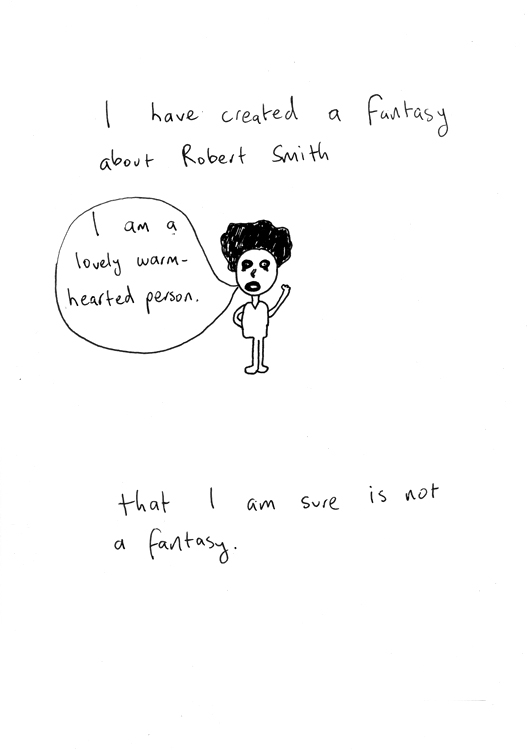 I have created a fantasy
about Robert Smith
I am a
lovely warm-
hearted person.
that I am sure is not
a fantasy.